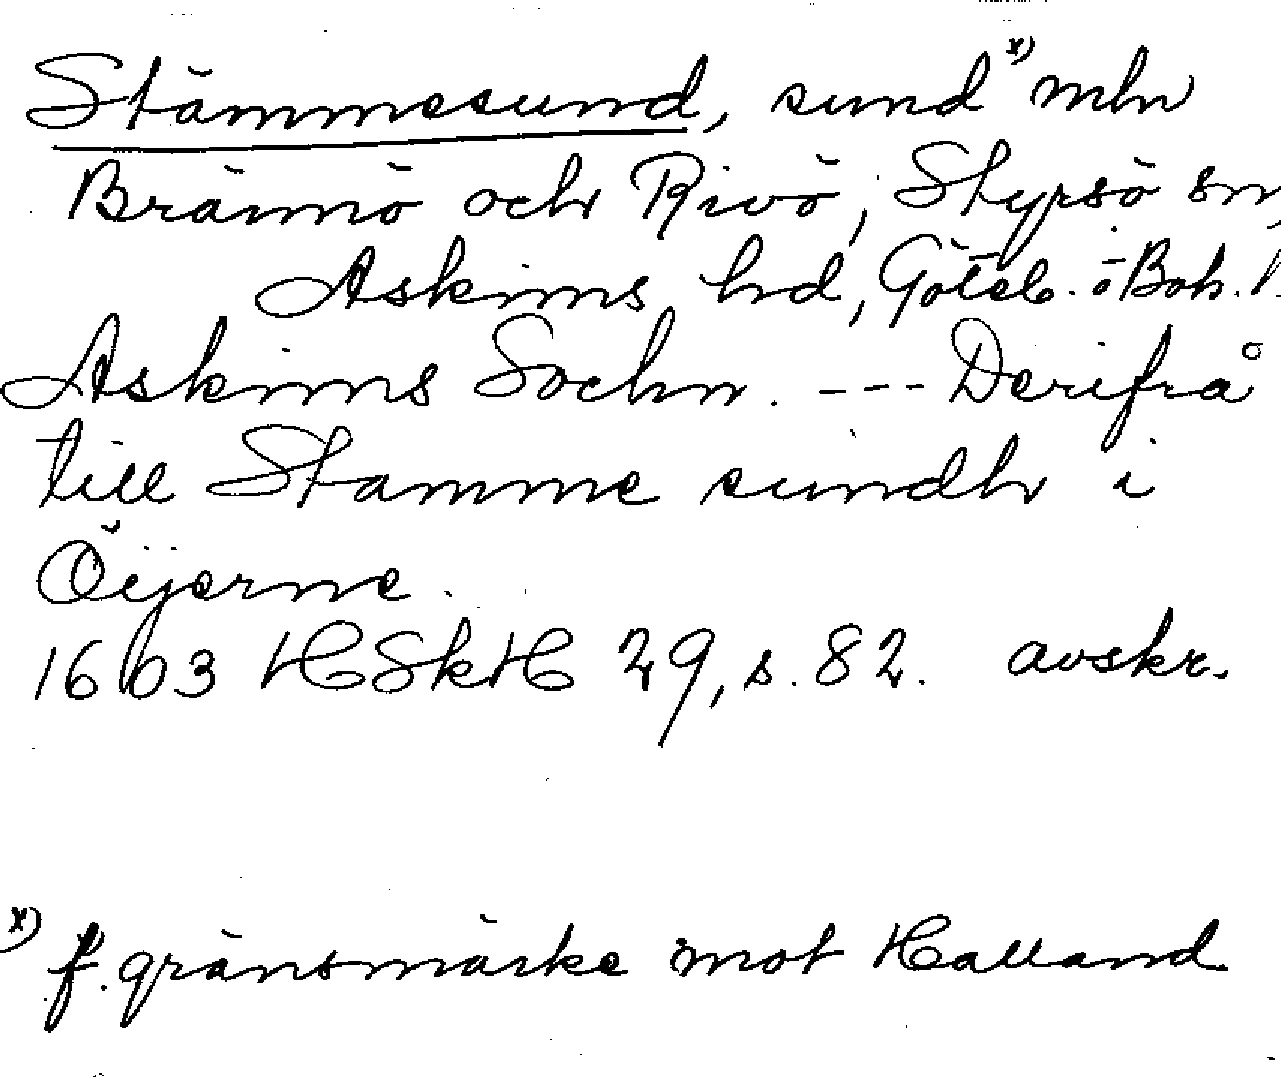 Stämmesund, sund x) mln
Brännö och Rivö, Styrsö sn,
Askims hd, Göteb. o Boh. l.
Askims Sochn. --- Derifrå
till Stamme sundh i
Öijerne.
1603 HSkH 29, s. 82. avskr.
x) f. gränsmärke mot Halland